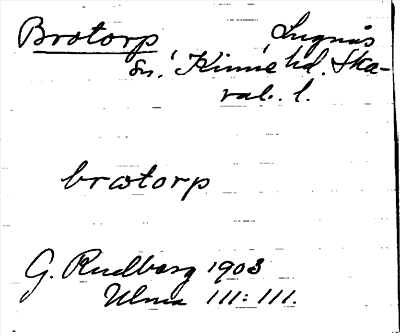 Brotorp Lugnås
Sn. Kinne hd. Ska-
rab. l.
brotorp
G. Rudberg 1903
Ulma 111:111.